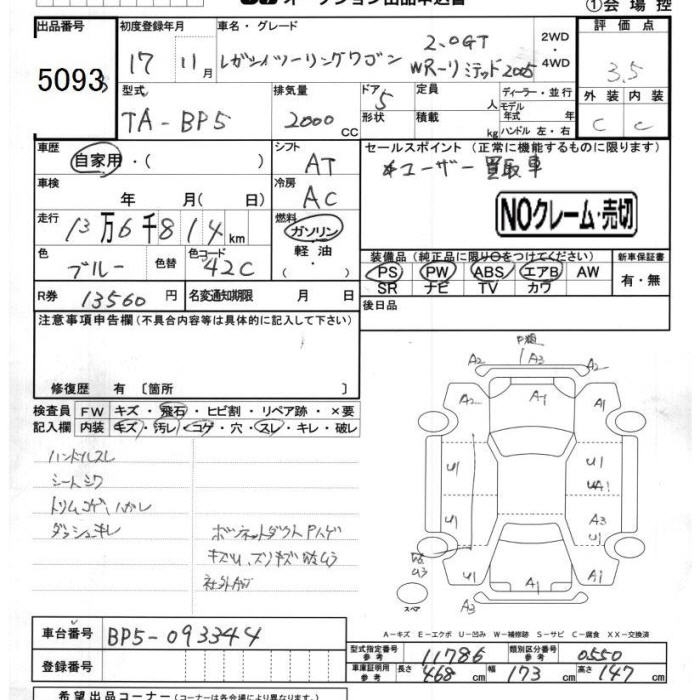 オークション出品申込書
①会場控
出品番号
5093
初度登録年月
17年11月
車名・グレード
レガシィツーリングワゴン
2.0GT
WR-リミテッド2005
2WD
4WD
評価点
3.5
外装 内装
C C
型式
TA-BP5
排気量
2000 CC
ドア 5
形状
定員 人
積載 kg
ディーラー・並行
モデル年式 年
ハンドル 左・右
車歴
自家用・( )
シフト
AT
セールスポイント(正常に機能するものに限ります)
*ユーザー買取車
車検
年 月( 日)
冷房
AC
NOクレーム・売切
走行
13万6千814km
燃料
ガソリン
軽油
( ・ )
色
ブルー
色替
色コード
42C
装備品(純正品に限り○をつけてください)
PS PW ABS エアB AW
SR ナビ TV カワ
新車保証書
有・無
R券
13560円
名変通知期限 月 日
後日品
注意事項申告欄(不具合内容等は具体的に記入して下さい)
修復歴 有 〔箇所 〕
検査員記入欄
FW キズ・飛石・ヒビ割・リペア跡・×要
内装 キズ・汚レ・コゲ・穴・スレ・キレ・破レ
ハンドルスレ
シートシワ
トリムコゲ、ハガレ
ダッシュキレ
ボンネットダクトPハゲ
社外AW
A2 A3 A2
A2 A1 A1
U1 U1
UA1
U1 A3
U3
U1 A1 A1
スペア
A3
A-キズ E-エクボ U-凹み W-補修跡 S-サビ C-腐食 XX-交換済
車台番号
BP5-093344
登録番号
型式指定番号 参考 11786
類別区分番号 参考 0550
車庫証明用 参考 長さ 468cm 幅 173cm 高さ 147cm
希望出品コーナー(コーナーは各会場により異なります。)